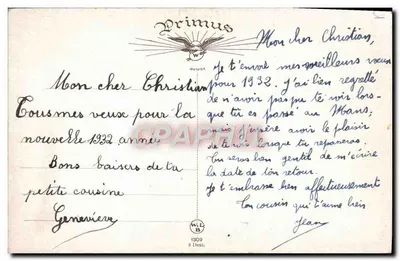 Primus
Mon cher Christian
Tous mes veux pour la
nouvelle 1932 année
Bons baisers de ta
petite cousine
Geneviève
Mon cher Christian,
Je t'envoie mes meilleurs vœux
pour 1932. J'ai bien regretté
de n'avoir pas pu te voir lors-
que tu es passé au Mans,
mais j'espère avoir le plaisir
de te voir lorsque tu repasseras.
Tu seras bien gentil de m'écrire
la date de ton retour.
Je t'embrasse bien affectueusement
Ton cousin qui t'aime bien
Jean
CPARAMA
1309